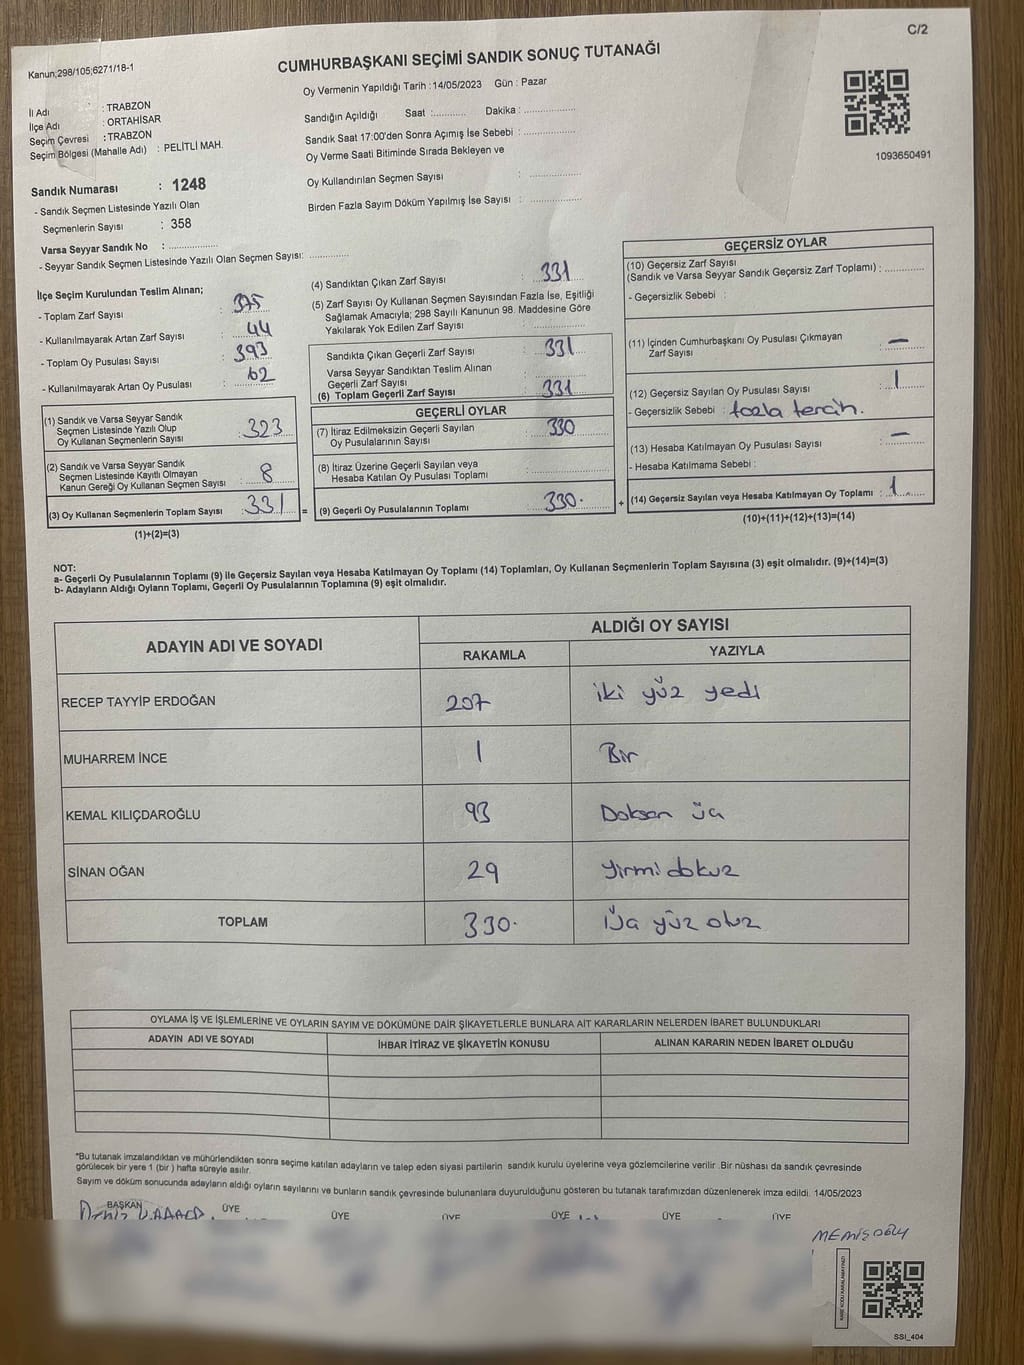 C/2
Kanun;298/105;6271/18-1
CUMHURBAŞKANI SEÇİMİ SANDIK SONUÇ TUTANAĞI
Oy Vermenin Yapıldığı Tarih : 14/05/2023 Gün : Pazar
İl Adı : TRABZON
İlçe Adı : ORTAHİSAR
Seçim Çevresi : TRABZON
Seçim Bölgesi (Mahalle Adı) : PELİTLİ MAH.
Sandığın Açıldığı Saat :........... Dakika : ................
Sandık Saat 17:00'den Sonra Açımış İse Sebebi : ................
Oy Verme Saati Bitiminde Sırada Bekleyen ve
Oy Kullandırılan Seçmen Sayısı : ................
Birden Fazla Sayım Döküm Yapılmış İse Sayısı : ................
1093650491
Sandık Numarası : 1248
- Sandık Seçmen Listesinde Yazılı Olan
Seçmenlerin Sayısı : 358
Varsa Seyyar Sandık No : ................
- Seyyar Sandık Seçmen Listesinde Yazılı Olan Seçmen Sayısı: .............
İlçe Seçim Kurulundan Teslim Alınan;
- Toplam Zarf Sayısı : 375
- Kullanılmayarak Artan Zarf Sayısı : 44
- Toplam Oy Pusulası Sayısı : 393
- Kullanılmayarak Artan Oy Pusulası : 62
(1) Sandık ve Varsa Seyyar Sandık
Seçmen Listesinde Yazılı Olup
Oy Kullanan Seçmenlerin Sayısı : 323
(2) Sandık ve Varsa Seyyar Sandık
Seçmen Listesinde Kayıtlı Olmayan
Kanun Gereği Oy Kullanan Seçmen Sayısı : 8
(3) Oy Kullanan Seçmenlerin Toplam Sayısı : 331 =
(1)+(2)=(3)
(4) Sandıktan Çıkan Zarf Sayısı : 331
(5) Zarf Sayısı Oy Kullanan Seçmen Sayısından Fazla İse, Eşitliği
Sağlamak Amacıyla; 298 Sayılı Kanunun 98. Maddesine Göre
Yakılarak Yok Edilen Zarf Sayısı : ................
Sandıkta Çıkan Geçerli Zarf Sayısı : 331
Varsa Seyyar Sandıktan Teslim Alınan
Geçerli Zarf Sayısı : ................
(6) Toplam Geçerli Zarf Sayısı : 331
GEÇERLİ OYLAR
(7) İtiraz Edilmeksizin Geçerli Sayılan
Oy Pusulalarının Sayısı : 330
(8) İtiraz Üzerine Geçerli Sayılan veya
Hesaba Katılan Oy Pusulası Toplamı : ................
(9) Geçerli Oy Pusulalarının Toplamı : 330. +
GEÇERSİZ OYLAR
(10) Geçersiz Zarf Sayısı
(Sandık ve Varsa Seyyar Sandık Geçersiz Zarf Toplamı) : ............
- Geçersizlik Sebebi :
(11) İçinden Cumhurbaşkanı Oy Pusulası Çıkmayan
Zarf Sayısı : —
(12) Geçersiz Sayılan Oy Pusulası Sayısı : 1
- Geçersizlik Sebebi : fazla tercih.
(13) Hesaba Katılmayan Oy Pusulası Sayısı : —
- Hesaba Katılmama Sebebi :
(14) Geçersiz Sayılan veya Hesaba Katılmayan Oy Toplamı : 1
(10)+(11)+(12)+(13)=(14)
NOT:
a- Geçerli Oy Pusulalarının Toplamı (9) ile Geçersiz Sayılan veya Hesaba Katılmayan Oy Toplamı (14) Toplamları, Oy Kullanan Seçmenlerin Toplam Sayısına (3) eşit olmalıdır. (9)+(14)=(3)
b- Adayların Aldığı Oyların Toplamı, Geçerli Oy Pusulalarının Toplamına (9) eşit olmalıdır.
ADAYIN ADI VE SOYADI
ALDIĞI OY SAYISI
RAKAMLA YAZIYLA
RECEP TAYYİP ERDOĞAN 207 iki yüz yedi
MUHARREM İNCE 1 Bir
KEMAL KILIÇDAROĞLU 93 Doksan üç
SİNAN OĞAN 29 Yirmi dokuz
TOPLAM 330. Üç yüz otuz
OYLAMA İŞ VE İŞLEMLERİNE VE OYLARIN SAYIM VE DÖKÜMÜNE DAİR ŞİKAYETLERLE BUNLARA AİT KARARLARIN NELERDEN İBARET BULUNDUKLARI
ADAYIN ADI VE SOYADI İHBAR İTİRAZ VE ŞİKAYETİN KONUSU ALINAN KARARIN NEDEN İBARET OLDUĞU
*Bu tutanak imzalandıktan ve mühürlendikten sonra seçime katılan adayların ve talep eden siyasi partilerin sandık kurulu üyelerine veya gözlemcilerine verilir .Bir nüshası da sandık çevresinde
görülecek bir yere 1 (bir ) hafta süreyle asılır.
Sayım ve döküm sonucunda adayların aldığı oyların sayılarını ve bunların sandık çevresinde bulunanlara duyurulduğunu gösteren bu tutanak tarafımızdan düzenlenerek imza edildi. 14/05/2023
BAŞKAN ÜYE ÜYE ÜYE ÜYE ÜYE ÜYE
MEMİŞOĞLU
SSI_404